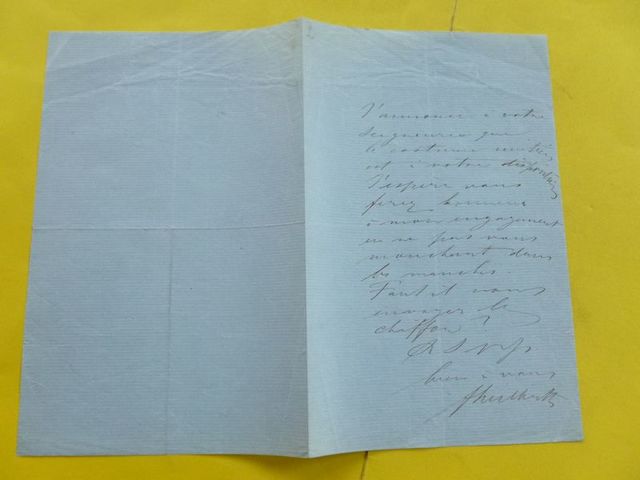 J'annonce à votre
Seigneurie que
le costume entier
est à votre disposition
J'espère vous
ferez honneur
à mon engagement
en ne pas vous
mouchant dans
les manches
Faut il vous
envoyer le
chiffon ?
R S V P
bien à vous